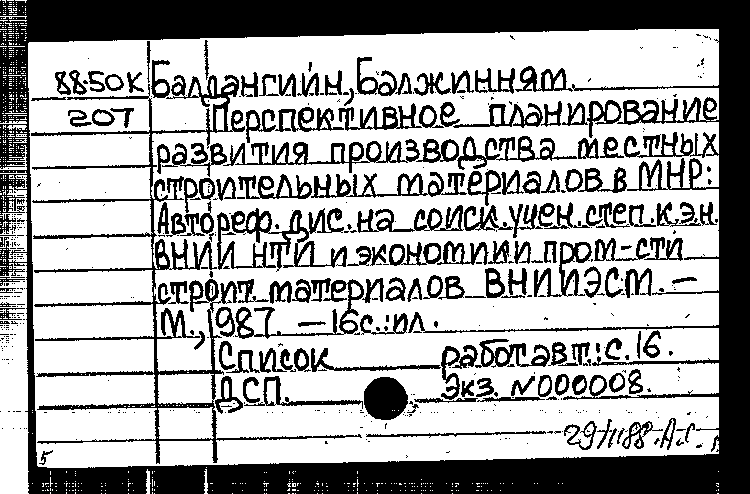 88-50К Балдангийн, Балжинням.
207 Перспективное планирование
развития производства местных
строительных материалов в МНР:
Автореф. дис. на соиск. учен. степ. к.э.н.
ВНИИ НТИ и экономики пром-сти
строит. материалов ВНИИЭСМ. —
М., 1987. — 16с.: ил.
Список работ авт.: с. 16.
ДСП. Экз. №000008.
29/1188. А.С.
5